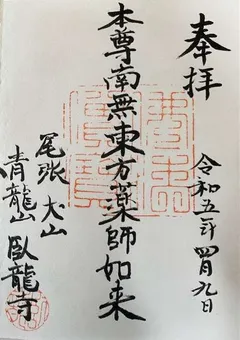 奉拝
令和五年四月九日
本尊南無東方薬師如来
尾張犬山
青龍山臥龍寺